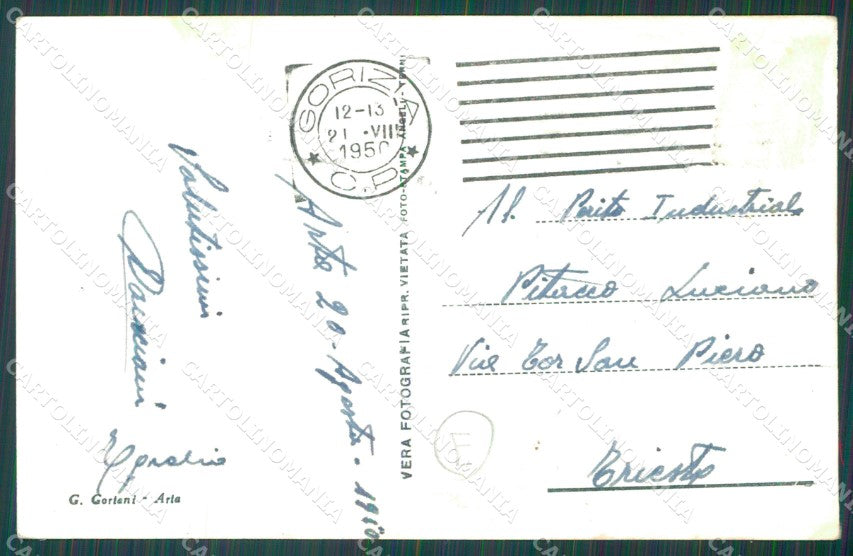 GORIZIA
12-13
21 . VIII
1950
C.P.
Arta 20 - Agosto - 1950
Salutissimi
G. Gortani - Arta
VERA FOTOGRAFIA RIPR. VIETATA FOTO-STAMPA ANGELI - TERNI
Al Perito Industriale
Pitacco Luciano
Via Tor San Piero
Trieste
CARTOLINOMANIA